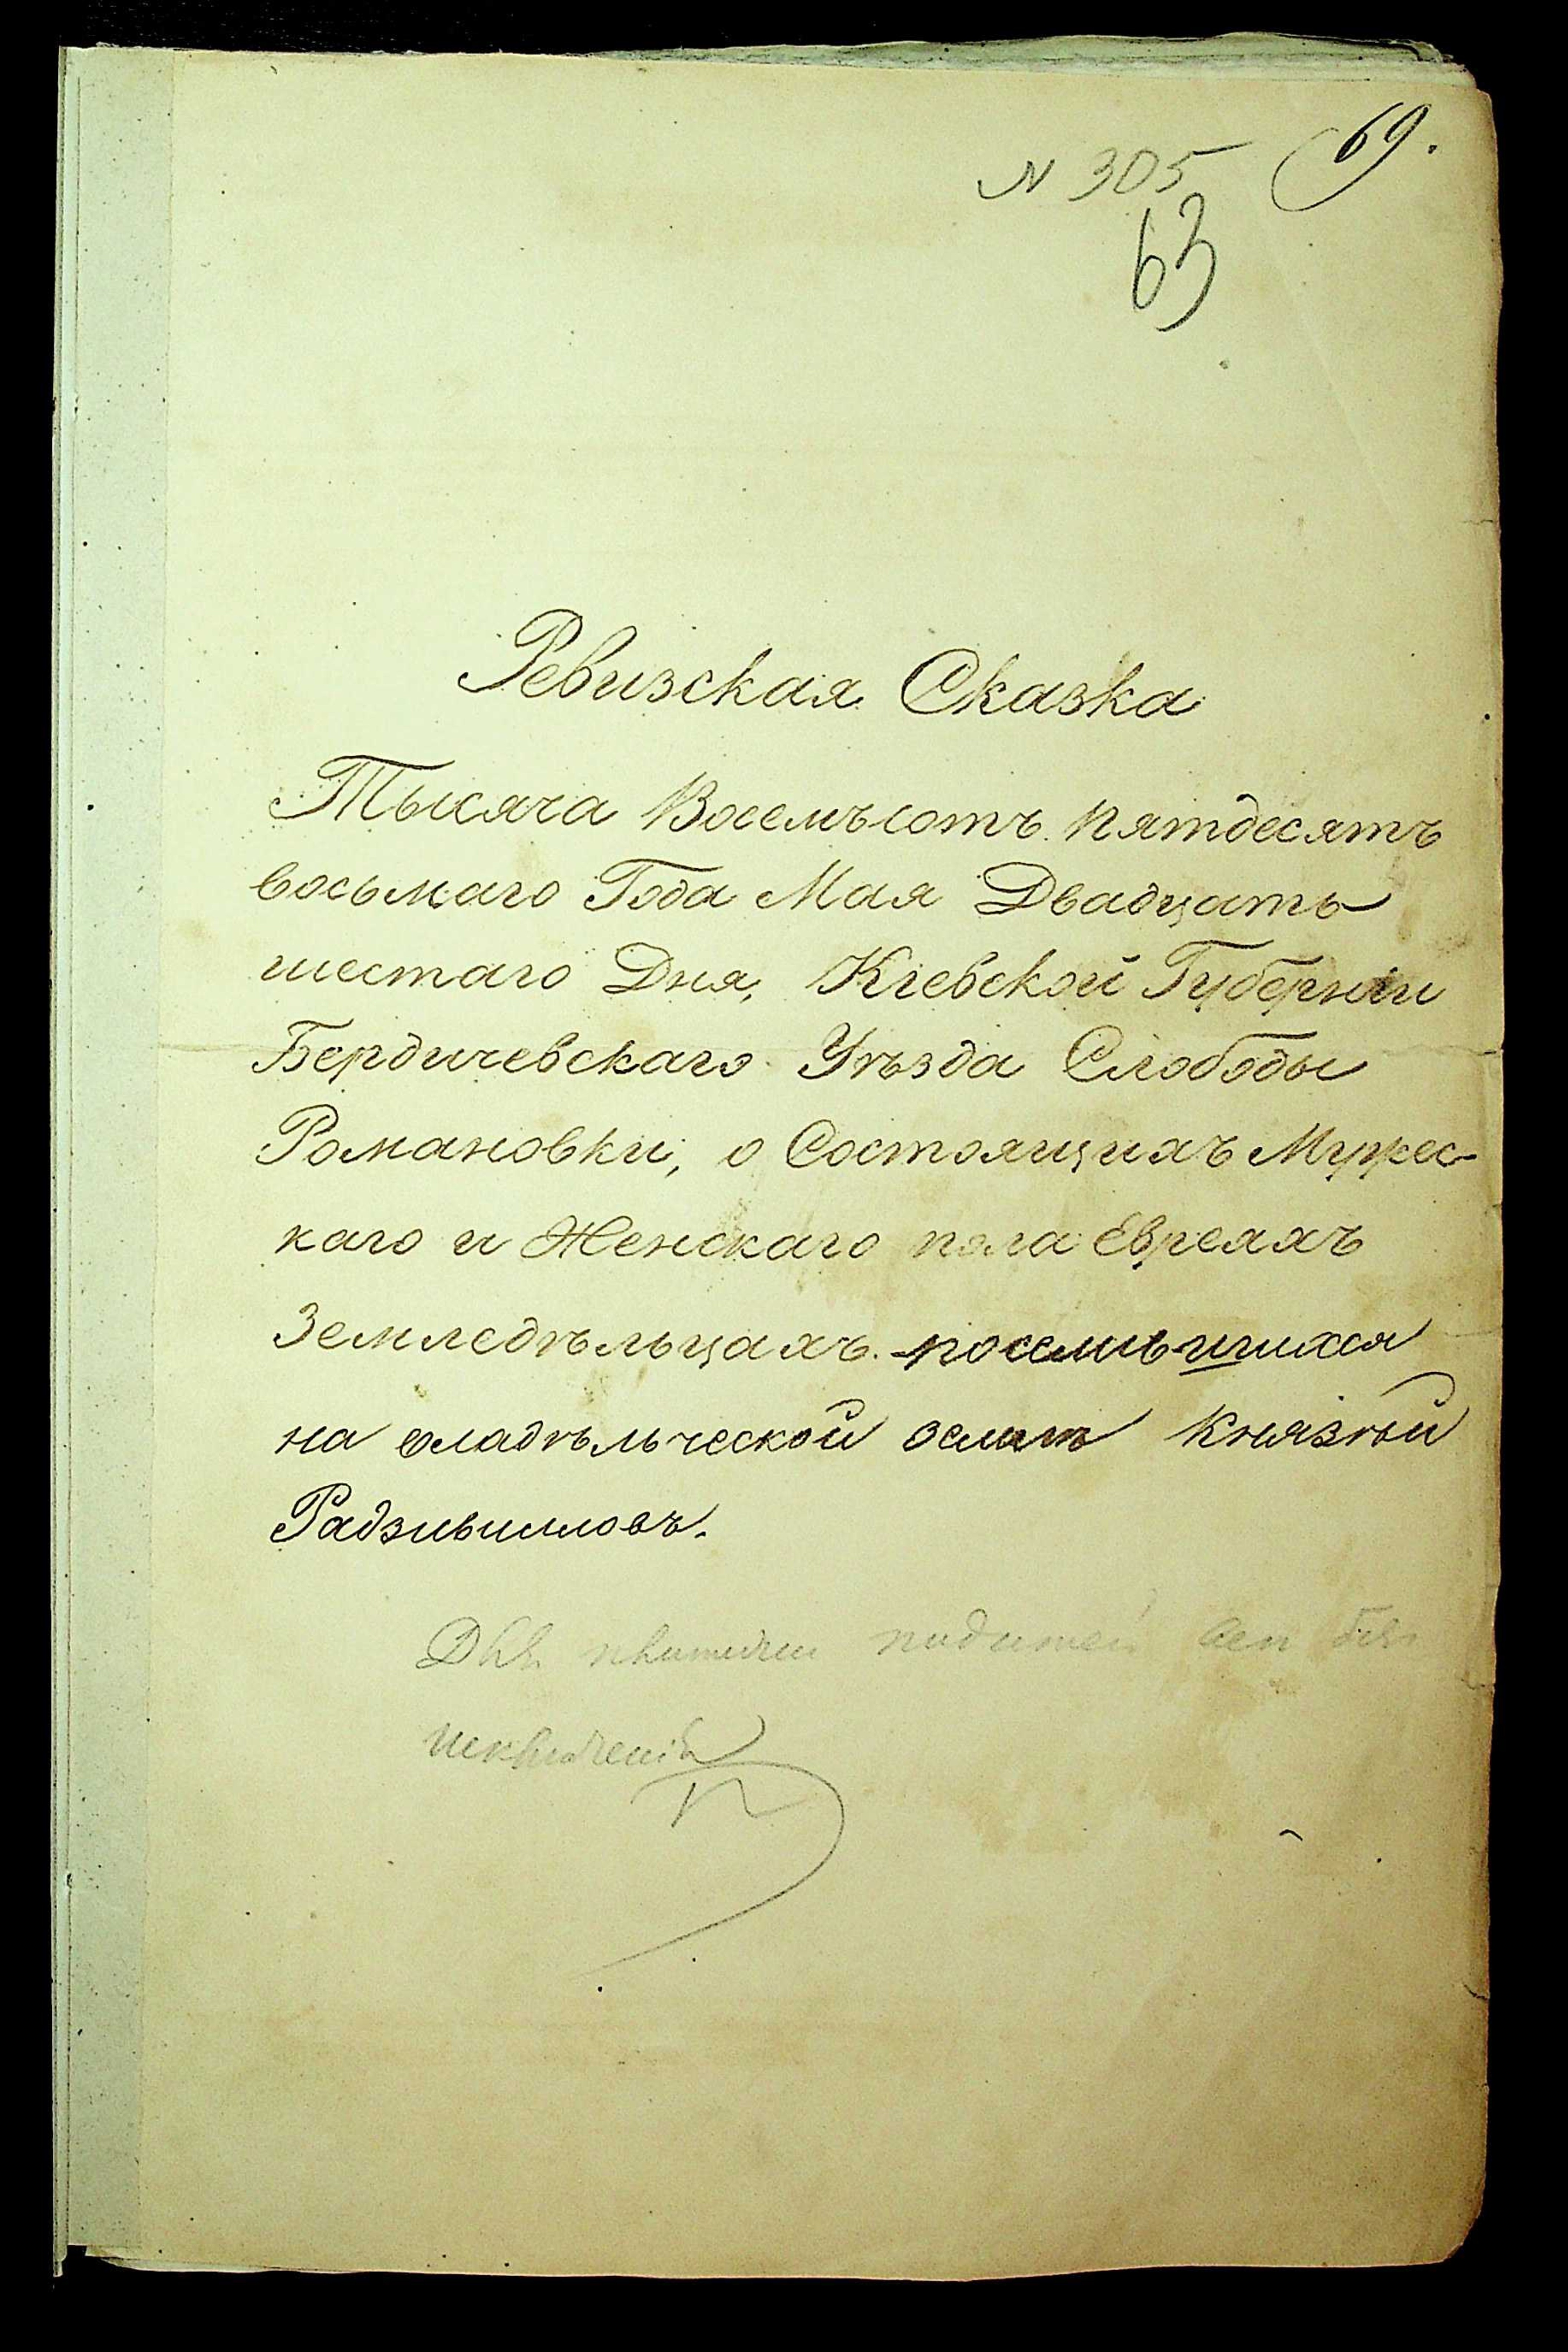 69.
N 305
63
Ревизская Сказка
Тысяча Восемъсотъ пятдесятъ
восьмаго Года Мая Двадцать
шестаго Дня, Кіевской Губерніи
Бердичевскаго Уѣзда Слободы
Романовки, о Состоящихъ Мужес-
каго и Женскаго пола Евреяхъ
Земледѣльцахъ поселившихся
на владѣльческой землѣ Князѣй
Радзивилловъ.
податей
исключенія